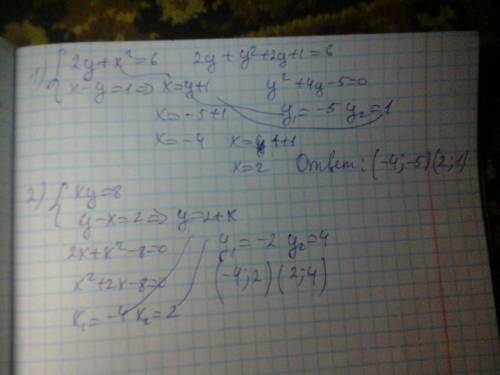 1) { 2y+x²=6   2y+y²+2y+1=6
x-y=1 ⇒ x=y+1   y²+4y-5=0
x=-5+1   y₁=-5 y₂=1
x=-4   x=y+1
x=2   Ответ: (-4;-5)(2;1)
2) { xy=8
y-x=2 ⇒ y=2+x
2x+x²-8=0   y₁=-2 y₂=4
x²+2x-8=0   (-4;2)(2;4)
x₁=-4 x₂=2